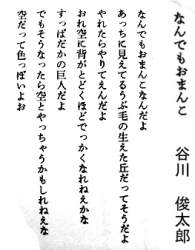 なんでもおまんこ
谷川 俊太郎
なんでもおまんこなんだよ
あっちに見えてるうぶ毛の生えた丘だってそうだよ
やれたらやりてえんだよ
おれ空に背がとどくほどでっかくなれねえかな
すっぱだかの巨人だよ
でもそうなったら空とやっちゃうかもしれねえな
空だって色っぽいよお